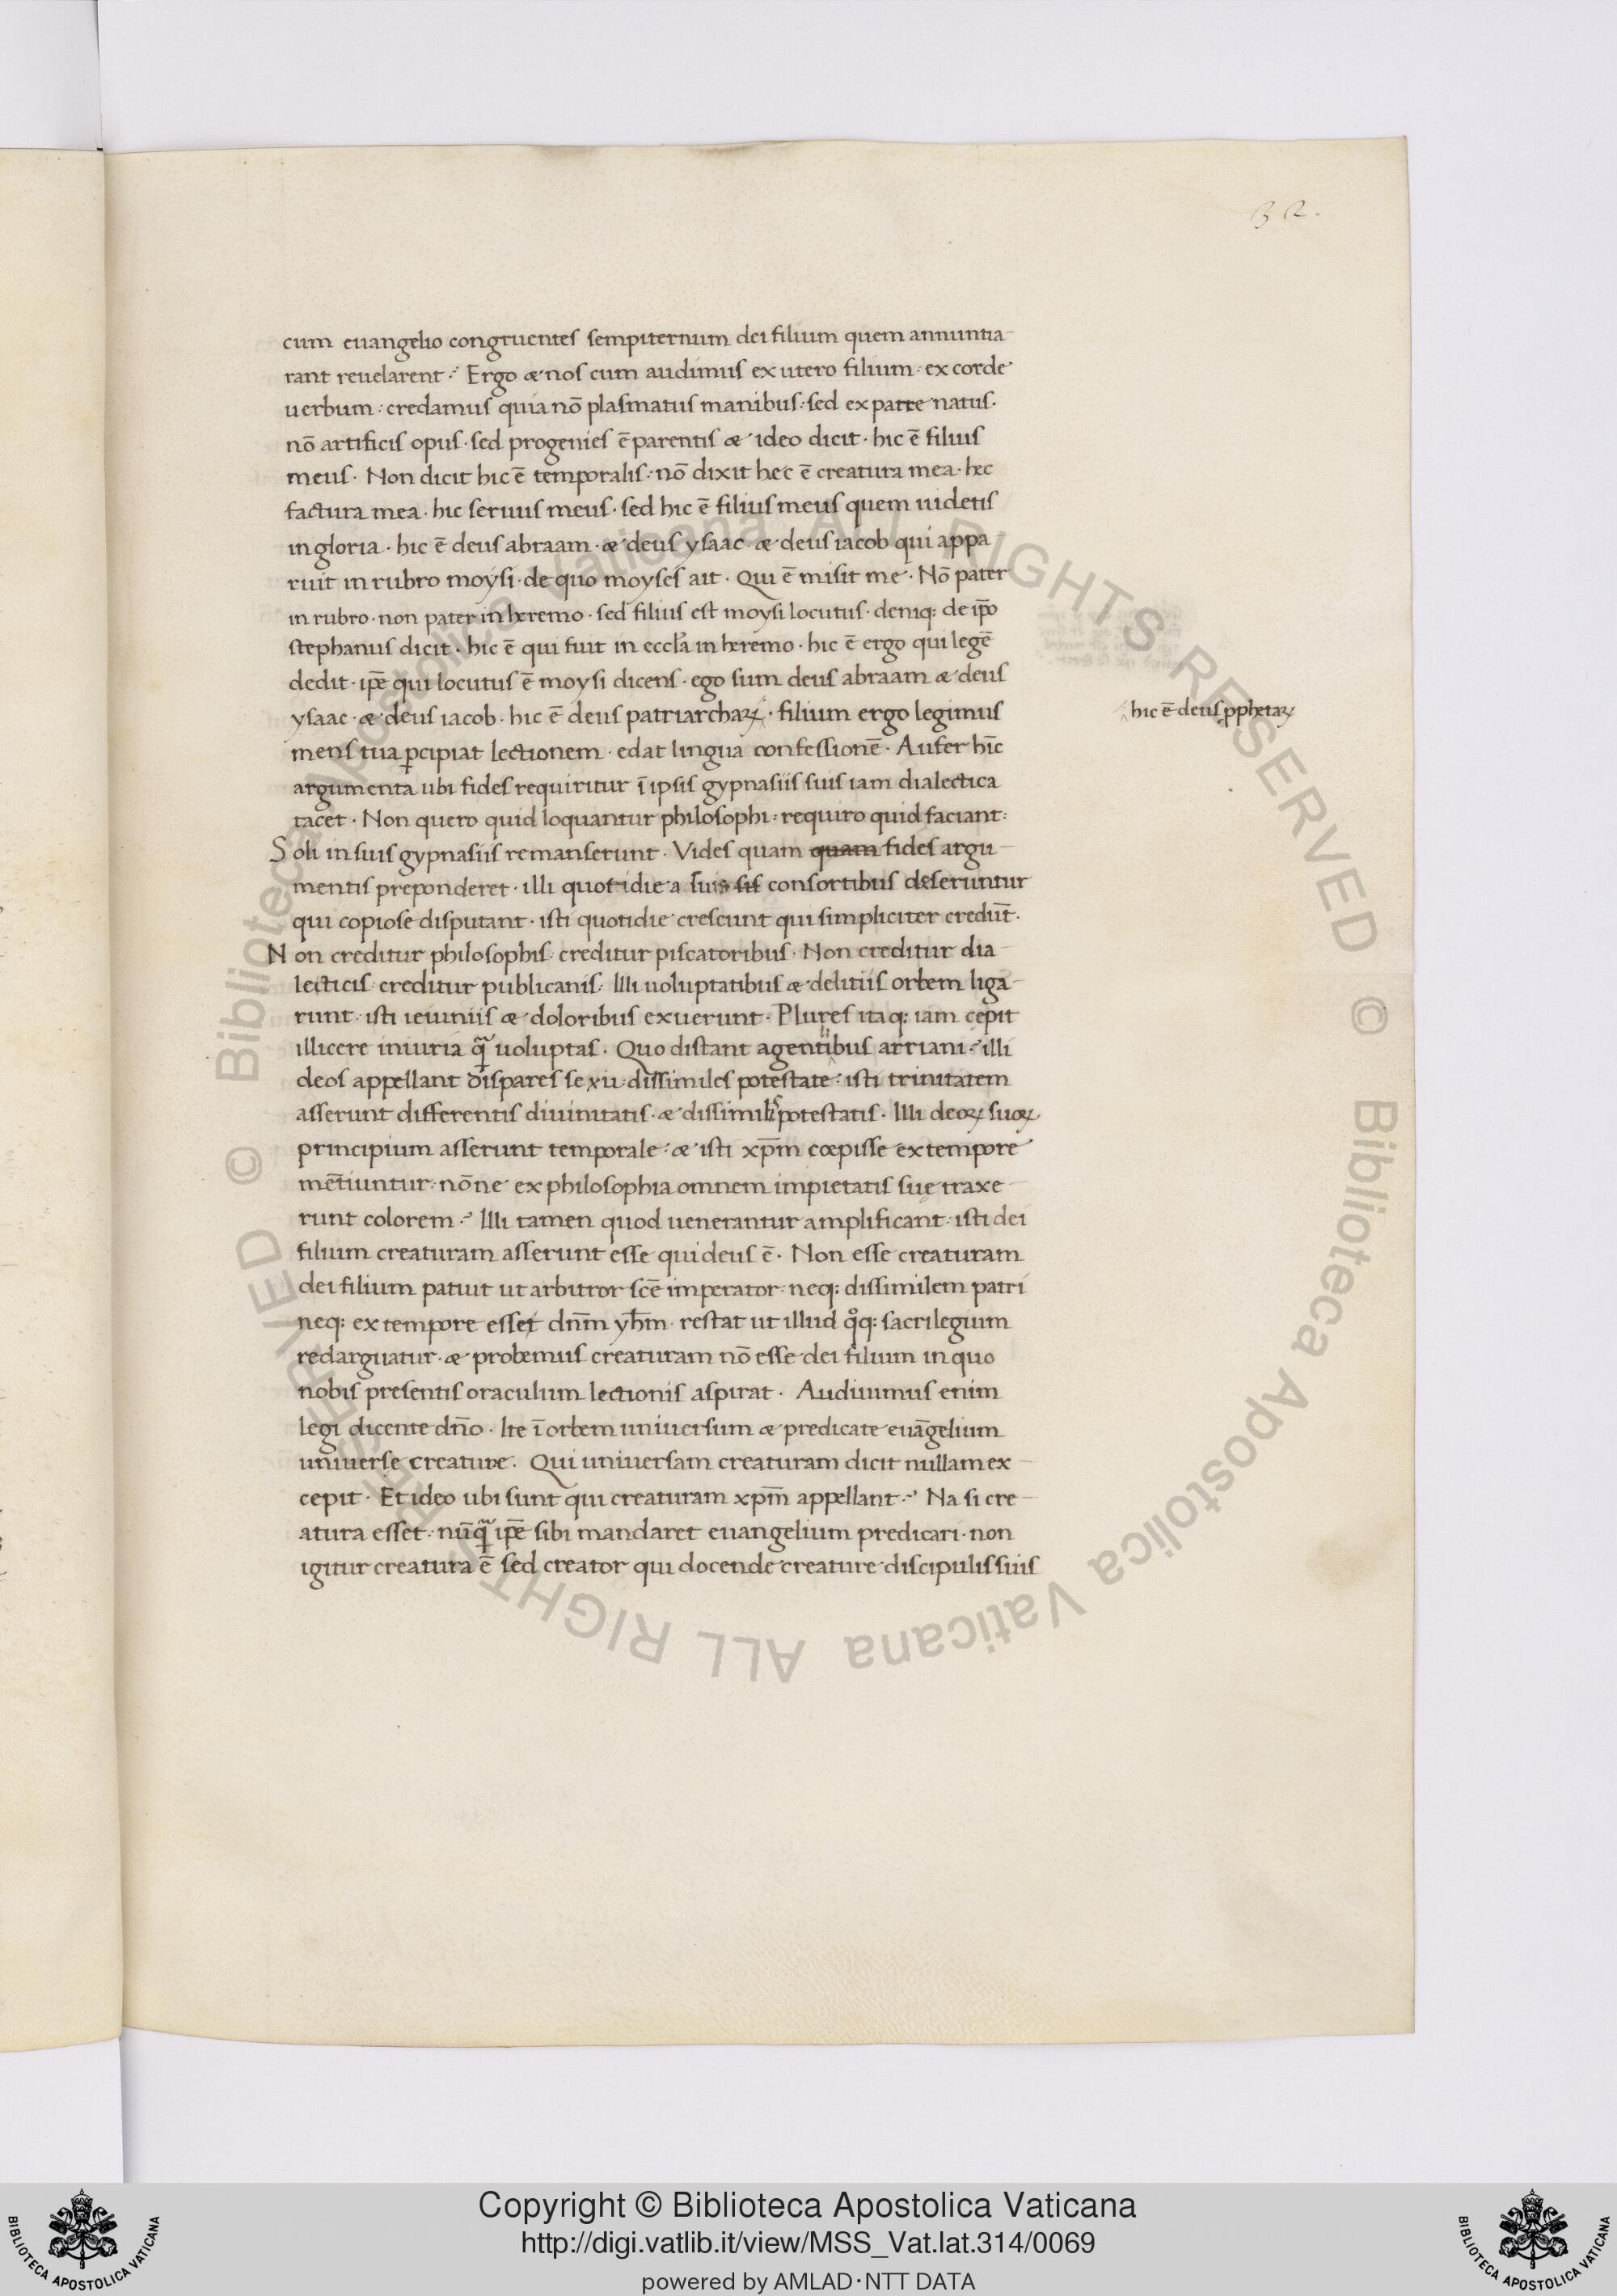 32.
cum euangelio congruentes sempiternum dei filium quem annuntia-
rant reuelarent. Ergo æ nos cum audimus ex utero filium: ex corde
uerbum: credamus quia nō plasmatus manibus: sed ex patre natus.
nō artificis opus. sed progenies ē parentis æ ideo dicit. hic ē filius
meus. Non dicit hic ē temporalis: nō dixit hec ē creatura mea. hec
factura mea. hic seruus meus. sed hic ē filius meus quem uidetis
in gloria. hic ē deus abraam. æ deus ysaac. æ deus iacob qui appa
ruit in rubro moysi. de quo moyses ait. Qui ē misit me. Nō pater
in rubro. non pater in heremo. sed filius est moysi locutus. deniq: de ip̄o
stephanus dicit. hic ē qui fuit in eccl'a in heremo. hic ē ergo qui legē
dedit. ip̄e qui locutus ē moysi dicens. ego sum deus abraam æ deus
ysaac. æ deus iacob. hic ē deus patriarchaꝝ. filium ergo legimus
hic ē deus ꝓphetaꝝ
mens tua ꝑcipiat lectionem. edat lingua confessionē. Aufer hīc
argumenta ubi fides requiritur ī ipsis gypnasiis suis iam dialectica
tacet. Non quero quid loquantur philosophi: requiro quid faciant:
Soli in suis gypnasiis remanserunt. Vides quam quam fides argu-
mentis preponderet. illi quotidie a suis sis consortibus deseruntur
qui copiose disputant. isti quotidie crescunt qui simpliciter credūt.
Non creditur philosophis: creditur piscatoribus. Non creditur dia-
lecticis: creditur publicanis. Illi uoluptatibus æ delitiis orbem liga-
runt. isti ieiuniis æ doloribus exuerunt. Plures itaq: iam cepit
illicere iniuria q̄ uoluptas. Quo distant agentibus arriani: illi
deos appellant dispares sexu: dissimiles potestate: isti trinitatem
asserunt differentis diuinitatis. æ dissimilis potestatis. Illi deoꝝ suoꝝ
principium asserunt temporale: æ isti xp̄m cœpisse ex tempore
mētiuntur. nōne ex philosophia omnem impietatis sue traxe
runt colorem. Illi tamen quod uenerantur amplificant: isti dei
filium creaturam asserunt esse qui deus ē. Non esse creaturam
dei filium patuit ut arbitror scē imperator: neq: dissimilem patri
neq: ex tempore esset dn̄m yh̄m. restat ut illud q°q: sacrilegium
redarguatur. æ probemus creaturam nō esse dei filium in quo
nobis presentis oraculum lectionis aspirat. Audiuimus enim
legi dicente dn̄o. Ite ī orbem uniuersum æ predicate euāgelium
uniuerse creature. Qui uniuersam creaturam dicit nullam ex-
cepit. Et ideo ubi sunt qui creaturam xp̄m appellant. Na si cre-
atura esset. nūq̄ ip̄e sibi mandaret euangelium predicari. non
igitur creatura ē sed creator qui docende creature discipulis suis
Copyright © Biblioteca Apostolica Vaticana
http://digi.vatlib.it/view/MSS_Vat.lat.314/0069
powered by AMLAD·NTT DATA
BIBLIOTECA APOSTOLICA VATICANA
BIBLIOTECA APOSTOLICA VATICANA
© Biblioteca Apostolica Vaticana ALL RIGHTS RESERVED © Biblioteca Apostolica Vaticana ALL RIGHTS RESERVED